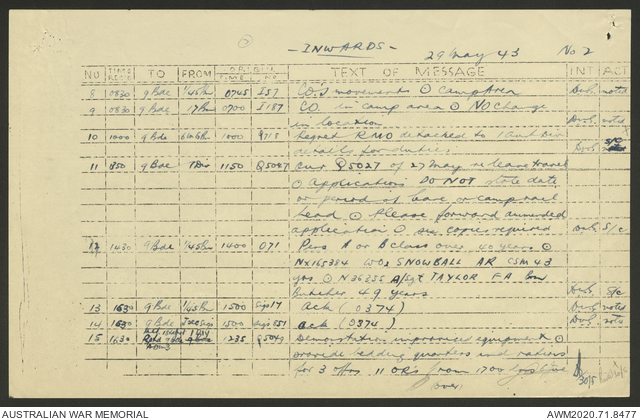 - INWARDS -
29 May 43 No 2
NO TIME RECD TO FROM ORIGIN TIME NO TEXT OF MESSAGE INT ACT
8 0830 9 Bde 1/45 Bn 0745 I57 CO.s movements ⊙ Camp Area noted
9 0830 9 Bde 17 Bn 0700 I187 CO in camp area ⊙ NO Change
in location noted
10 1000 9 Bde 1000 RMO detached to
detail for duties S/C
11 9 Bde 1 Div 1150 Q5047 our Q5027 of 27 May release travel
⊙ Applications DO NOT state date
or period of leave or camp rail
head ⊙ Please forward amended
application ⊙ six copies required S/C
12 1430 9 Bde 1/45 Bn 1400 071 Pers A or B class over 40 years ⊙
NX165384 WO2 SNOWBALL AR CSM 43
yrs ⊙ N36355 A/Sgt TAYLOR FA
Butcher 49 years S/C
13 1630 9 Bde 1/45 Bn 1500 Sigs 17 Ack (0374) noted
14 1630 9 Bde 1500 Sigs 851 ack (0374) noted
15 1630 9 Bde 1235 Q5049 Demonstration improvised equipment ⊙
provide bedding quarters and rations
for 3 offrs. 11 ORs from 1700
over
30/5
AUSTRALIAN WAR MEMORIAL AWM2020.71.8477